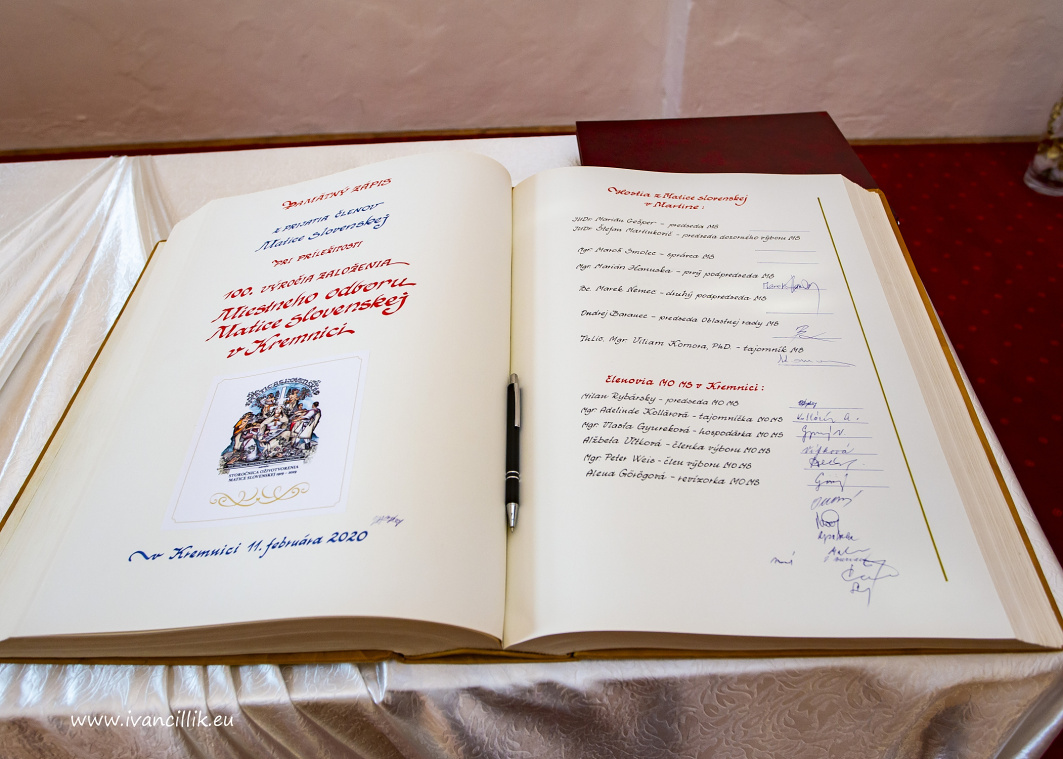 PAMÄTNÝ ZÁPIS
z PRIJATIA ČLENOV
Matice Slovenskej
PRI PRÍLEŽITOSTI
100. VÝROČIA ZALOŽENIA
Miestneho odboru
Matice Slovenskej
v Kremnici
STOROČNICA OŽIVOTVORENIA
MATICE SLOVENSKEJ 1919 - 2019
v Kremnici 11. februára 2020
Hostia z Matice slovenskej
v Martine :
JUDr. Marián Gešper - predseda MS
JUDr. Štefan Martinkovič - predseda dozorného výboru MS
Mgr. Maroš Smolec - správca MS
Mgr. Marián Hanuska - prvý podpredseda MS
Bc. Marek Nemec - druhý podpredseda MS
Ondrej Baranec - predseda Oblastnej rady MS
Mgr. Viliam Komora, PhD. - tajomník MS
Členovia MO MS v Kremnici :
Milan Rybársky - predseda MO MS
Mgr. Adelinde Kollárová - tajomníčka MO MS
Mgr. Vlasta Gyureková - hospodárka MO MS
Alžbeta Vítková - členka výboru MO MS
Vítková
Mgr. Peter Weis - člen výboru MO MS
Alena Görögová - revízorka MO MS
www.ivancillik.eu